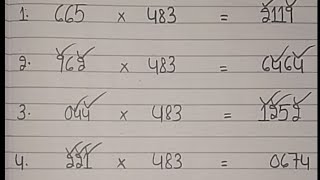 1. 665 × 483 = 2119
2. 962 × 483 = 6464
3. 044 × 483 = 1252
4. 221 × 483 = 0674